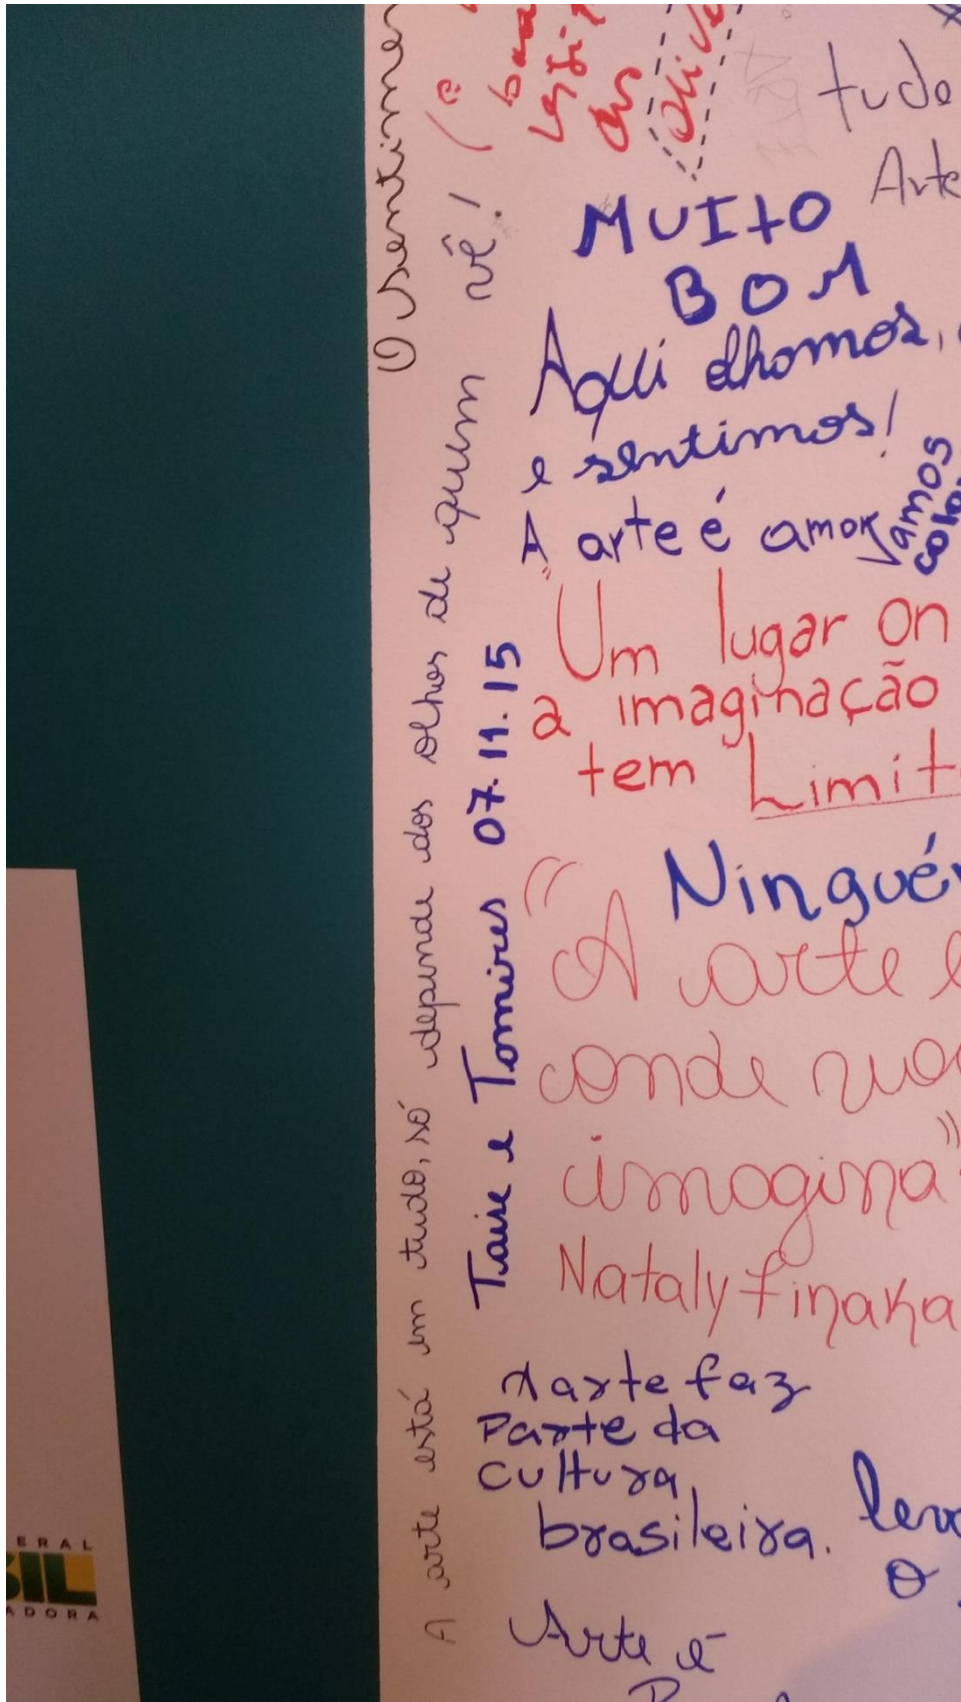 O sentimen
A arte está em tudo, só depende dos olhos de quem vê!
Taise e Tomires 07.11.15
tudo
Arte
MUITO
BOM
Aqui olhamos,
e sentimos!
A arte é amor
Vamos
colo
Um lugar on
a imaginação
tem Limit
Ningué
"A arte e
onde voc
imagina"
Nataly Finaka
A arte faz
Parte da
Cultura
brasileira.
leva
o
Arte é
ERAL
SIL
ADORA